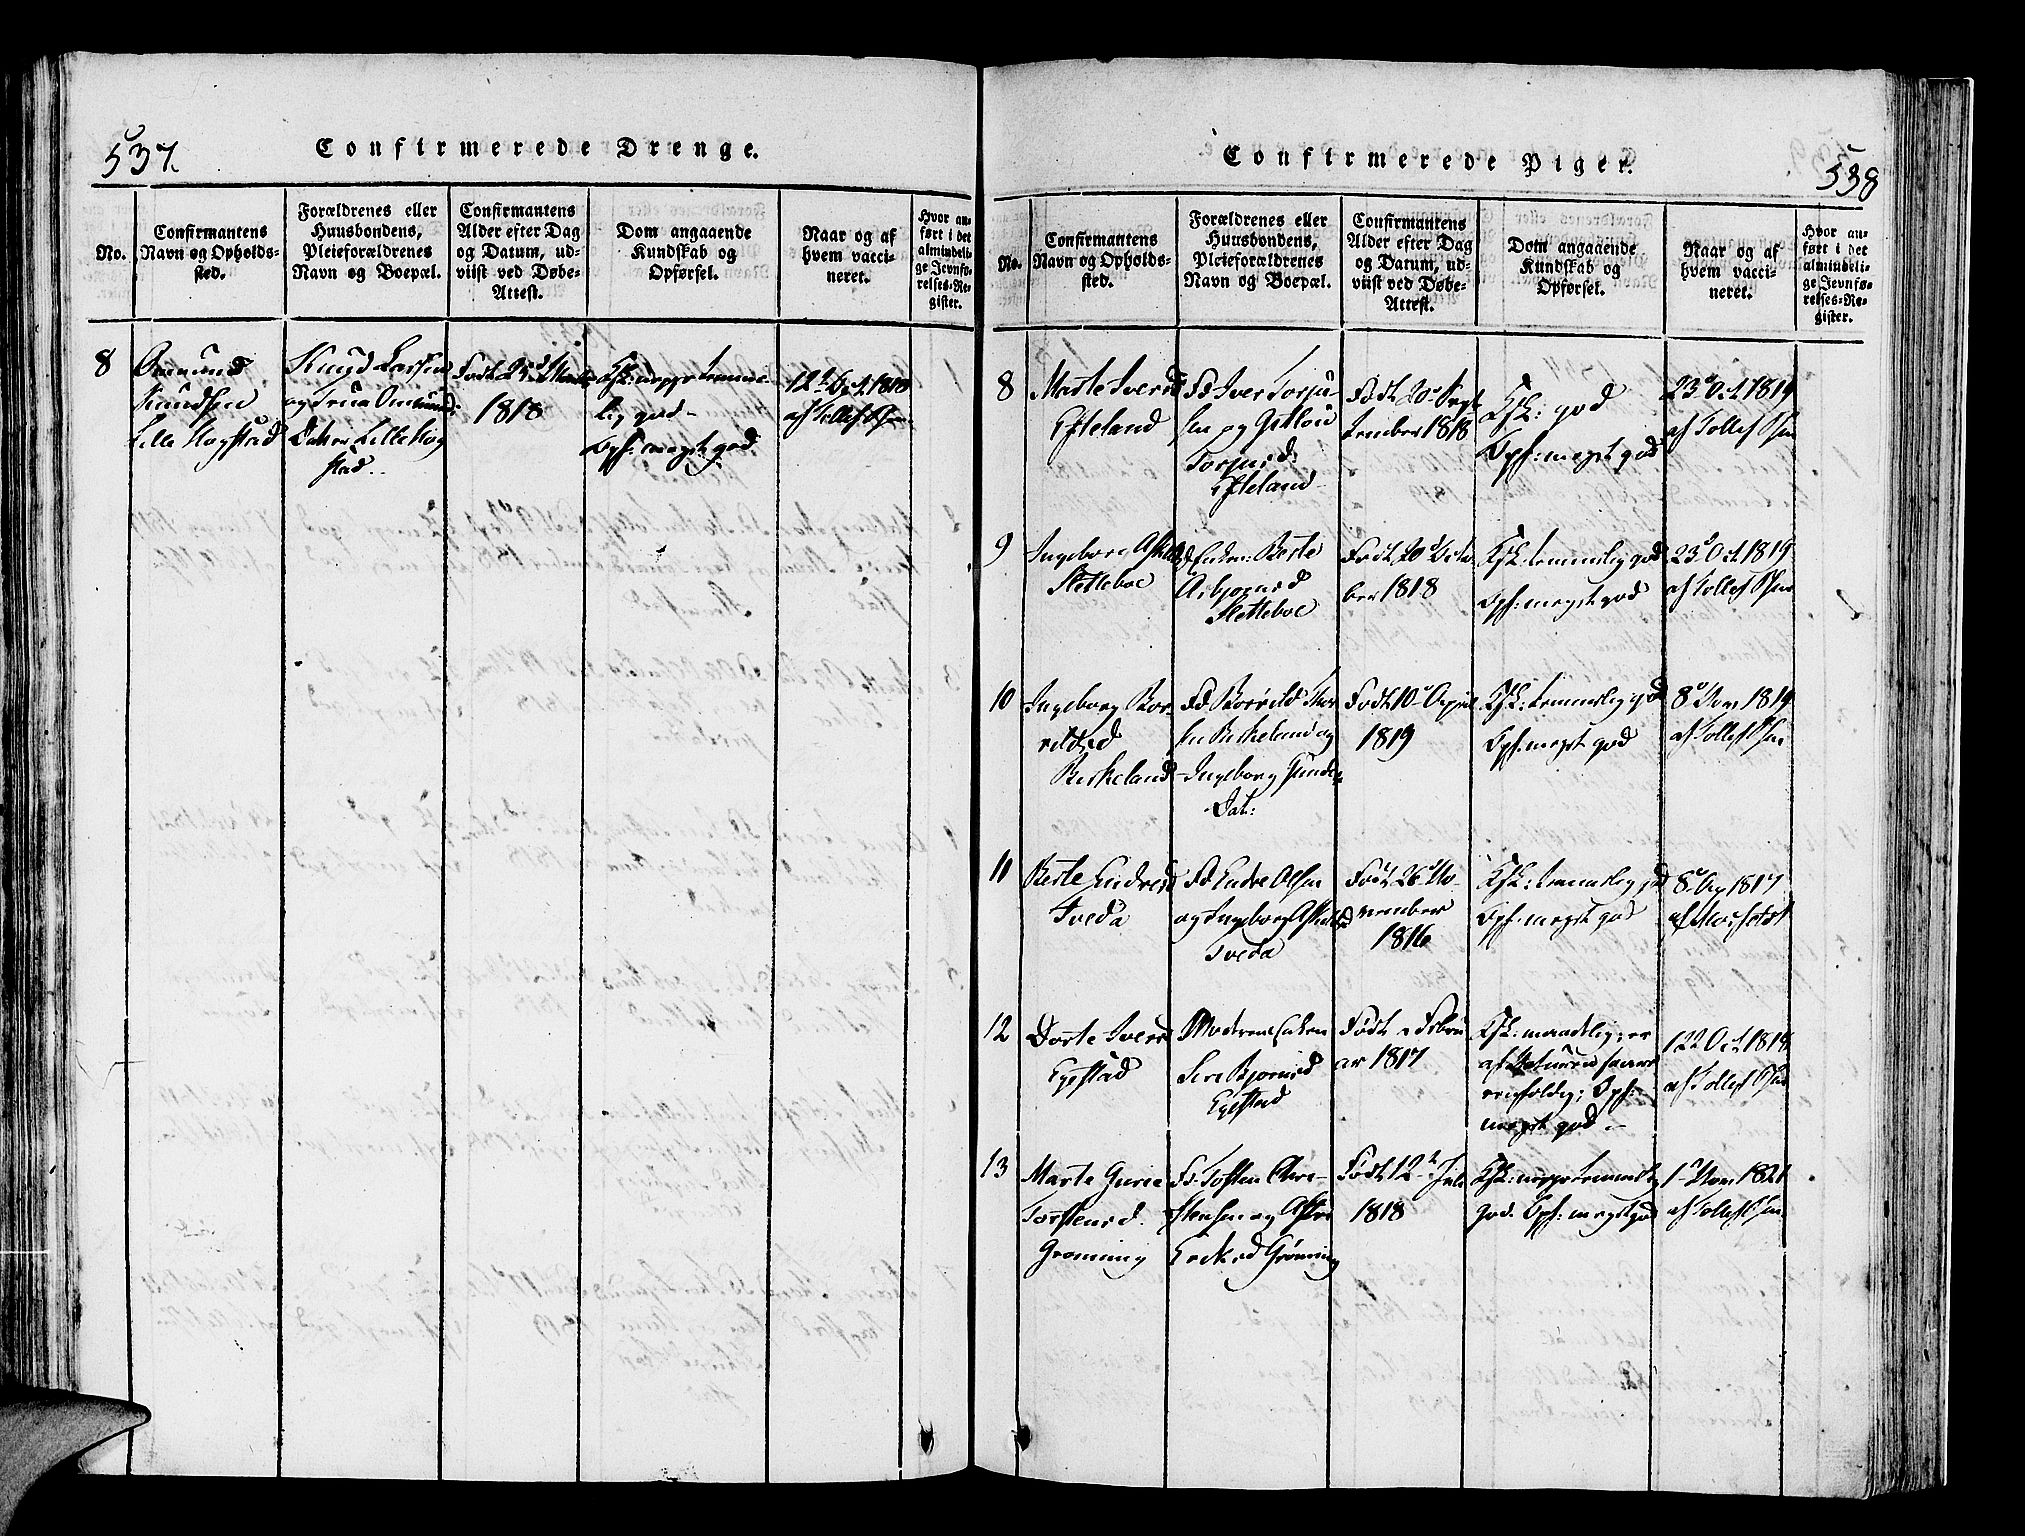 537.
Confirmerede Drenge.
No.
Confirmantens
Navn og Opholds-
sted.
Forældrenes eller
Huusbondens,
Pleieforældrenes
Navn og Boepæl.
Confirmantens
Alder efter Dag
og Datum, ud-
viist ved Døbe-
Attest.
Dom angaaende
Kundskab og
Opførsel.
Naar og af
hvem vacci-
neret.
Hvor an-
ført i det
almindeli-
ge Jevnfø-
relses-Re-
gister.
8
Omund
Knudsen
Lille Hogstad
Knud Larsen
og
Lille Hog
stad
Født 25
1818
Ksk: neppe temme-
lig god-
Opf: meget god
12 Oct. 1818
af Tollef
538
Confirmerede Piger.
No.
Confirmantens
Navn og Opholds-
sted.
Forældrenes eller
Huusbondens,
Pleieforældrenes
Navn og Boepæl.
Confirmantens
Alder efter Dag
og Datum, ud-
viist ved Døbe-
Attest.
Dom angaaende
Kundskab og
Opførsel.
Naar og af
hvem vacci-
neret.
Hvor an-
ført i det
almindeli-
ge Jevnfø-
relses-Re-
gister.
8
Marte Iversd
Efteland
Fd Iver Torju
sen og
Torjusd:
Efteland
Født 20 Sept
tember 1818
Ksk: god
Opf: meget god
23 Oct 1819
af Tollef Osen
9
Ingeborg
Sletteboe
Enken: Berte
Asbjørnsd
Sletteboe
Født 20 Octo
ber 1818
Ksk: temmelig god
Opf: meget god
23 Oct 1819
af Tollef Osen
10
Ingeborg Bor-
rildsd
Birkeland
Fd Borrild
sen Birkeland og
Ingeborg
Dat:
Født 10 April
1819
Ksk: temmelig god
Opf: meget god
8 Nov 1819
af Tollef Osen
11
Berte Endresd
Tveda
Fd Endre Olsen
og Ingeborg
Tveda
Født 26 No-
vember
1816
Ksk: temmelig god
Opf: meget god
8 Ag 1817
12
Dorte Iversd
Egestad
Moderen Enken
Siri Bjørnsd
Egestad
Født Febru
ar 1817
Ksk: maadelig; er
af Naturen saare
eenfoldig; Opf:
meget god
22 Oct 1818
af Tollef Osen
13
Marte Gurie
Torstensd.
Grønning
Fd: Tosten Chri-
stensen og
Grønning
Født 12 Juli
1818
Ksk: neppe temmelig
god. Opf: meget god
1 Nov 1821
af Tollef Osen